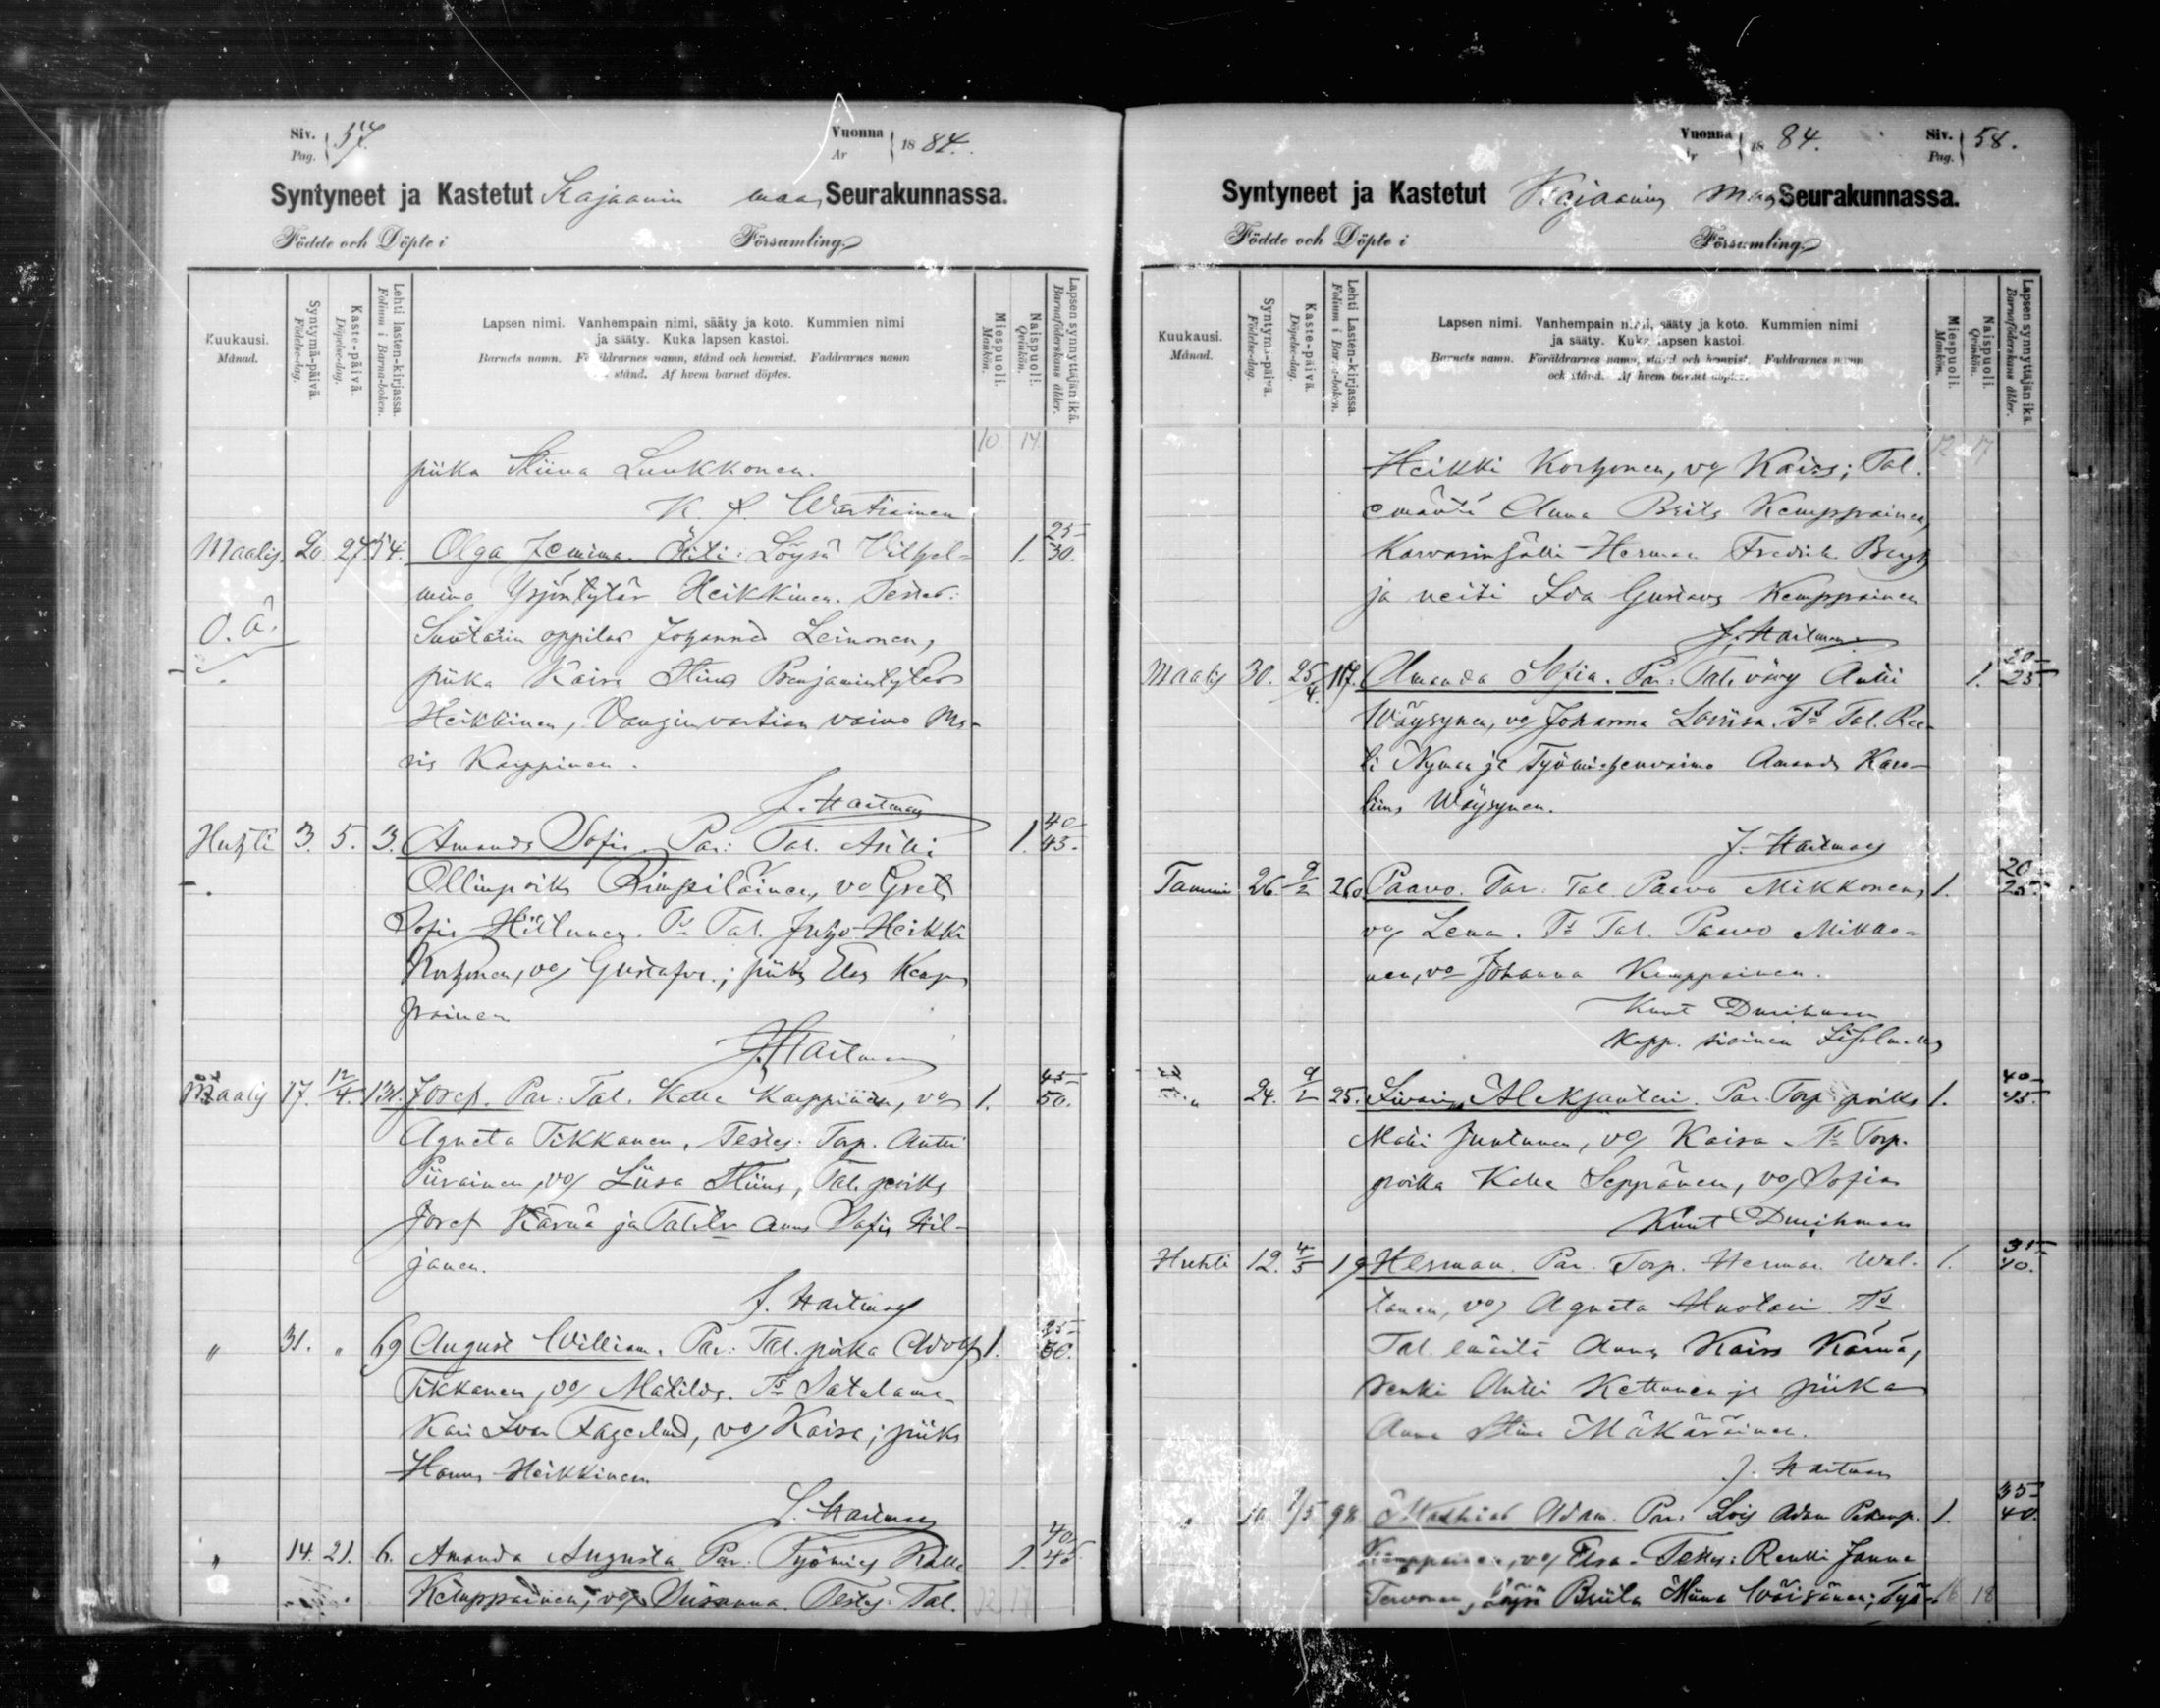 Siv. Pag. 57.
Vuonna År 1884.
Syntyneet ja Kastetut Kajaanin maa Seurakunnassa.
Födde och Döpte i Församling
Kuukausi. Månad.
Syntymä-päivä. Födelse-dag.
Kaste-päivä. Döpelse-dag.
Lehti lasten-kirjassa. Folium i Barna-boken.
Lapsen nimi. Vanhempain nimi, sääty ja koto. Kummien nimi
ja sääty. Kuka lapsen kastoi.
Barnets namn. Föräldrarnes namn, stånd och hemvist. Faddrarnes namn
stånd. Af hvem barnet döptes.
Miespuoli. Mankön.
Naispuoli. Qvinkön.
Lapsen synnyttäjän ikä. Barnaföderskans ålder.
10 14
piika Stiina Luukkonen.
K. Wartiainen
Maalis. 20. 27 54. Olga Jemima. Äiti: Löysä Vilhel- 1. 25-30.
mina Yrjöntytär Heikkinen. Testes:
O. Ä. Suutarin oppilas Johannes Leinonen,
piika Kaisa Stiina Benjamintytär
Heikkinen, Vanginvartian vaimo Ma-
ria Karppinen.
J. Hartman
Huhti 3. 5. 3. Amanda Sofia. Par: Tal. Antti 1. 40-45.
Ollinpoika Rimpiläinen, vo Greta
Sofia Hiltunen. Ts Tal. Juho Heikki
Korhonen, vo Gustafva; piika Elsa Kemp-
painen
J. Hartman
Maalis 17. 12/4. 131. Josef. Par: Tal. Kalle Karppinen, vo 1. 45-50.
Agneta Tikkanen. Testes: Torp. Antti
Piirainen, vo Liisa Stiina, Tal. poika
Josef Kärnä ja Tal.tr Anna Sofia Hil-
janen.
J. Hartman
" 31. " 69 August William. Par: Tal. poika Adolf 1. 25-30.
Tikkanen, vo Matilda. Ts Satulama-
kari Ivar Fagerlund, vo Kaisa; piika
Hanna Heikkinen
J. Hartman
" 14. 21. 6. Amanda Augusta Par: Työmies Kalle 1. 40-45.
Kemppainen, vo Susanna. Testes: Tal. 12 17
Vuonna År 1884.
Siv. Pag. 58.
Syntyneet ja Kastetut Kajaanin maa Seurakunnassa.
Födde och Döpte i Församling
Kuukausi. Månad.
Syntymä-päivä. Födelse-dag.
Kaste-päivä. Döpelse-dag.
Lehti Lasten-kirjassa. Folium i Barna-boken.
Lapsen nimi. Vanhempain nimi, sääty ja koto. Kummien nimi
ja sääty. Kuka lapsen kastoi.
Barnets namn. Föräldrarnes namn, stånd och hemvist. Faddrarnes namn
och stånd. Af hvem barnet döptes.
Miespuoli. Mankön.
Naispuoli. Qvinkön.
Lapsen synnyttäjän ikä. Barnaföderskans ålder.
12 17
Heikki Korhonen, vo Kaisa; Tal.
emäntä Anna Brita Kemppainen,
Karvarinsälli Herman Fredrik Bergh
ja neiti Ida Gustava Kemppainen
J. Hartman
Maalis 30. 25/4. 117. Amanda Sofia. Par: Tal. vävy Antti 1. 20-25.
Wäysynen, vo Johanna Lovisa. Ts Tal. Pee-
ti Nyman ja Työmiehenvaimo Amanda Karo-
liina Wäysynen.
J. Hartman
Tammi 26. 9/2 260. Paavo. Par: Tal. Paavo Mikkonen, 1. 20-25.
vo Lena. Ts Tal. Paavo Mikko-
nen, vo Johanna Kemppainen.
Knut Durchman
Kapp. siainen
" 24. 9/2 25. Iivari Aleksanteri. Par. Torp. poika 1. 40-45.
Matti Juntunen, vo Kaisa. Ts Torp.
poika Kalle Seppänen, vo Sofia
Knut Durchman
Huhti 12. 4/5 19 Herman. Par. Torp. Herman Wal- 1. 35-40.
tanen, vo Agneta Huotari Ts
Tal. emäntä Anna Kaisa Kärnä,
renki Antti Kettunen ja piika
Anna Stina Mäkäräinen.
J. Hartman
" 10 1/5 98. Mathias Adam. Par: Lois Adam 1. 35-40.
Kemppainen, vo Elsa. Testes: Renki Janne
Tervonen, Löysä Briita Stiina Wäisänen; Työ- 16 18